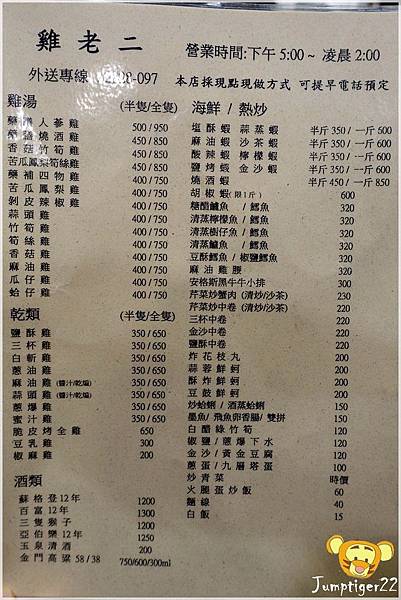 雞老二
營業時間:下午 5:00～ 凌晨 2:00
外送專線 28-097
本店採現點現做方式 可提早電話預定
雞湯 (半隻/全隻)
人蔘雞 500/950
燒酒雞 450/850
香菇竹筍雞 450/850
苦瓜鳳梨筍絲雞 450/850
藥補四物雞 400/750
苦瓜鳳梨雞 400/750
剝皮辣椒雞 400/750
蒜頭雞 400/750
竹筍雞 400/750
筍絲雞 400/750
香菇雞 400/750
麻油雞 400/750
瓜仔雞 400/750
蛤仔雞 400/750
乾類 (半隻/全隻)
鹽酥雞 350/650
三杯雞 350/650
白斬雞 350/650
蔥油雞 350/650
麻油雞(醬汁/乾煸) 350/650
蒜頭雞(醬汁/乾煸) 350/650
蔥爆雞 350/650
蜜汁雞 350/650
脆皮烤全雞 650
豆乳雞 300
椒麻雞 200
酒類
蘇格登12年 1200
百富12年 1300
三隻猴子 1200
亞伯樂12年 1250
玉泉清酒 200
金門高粱 58/38 750/600/300ml
海鮮 / 熱炒
塩酥蝦 蒜蒸蝦 半斤 350/一斤 600
麻油蝦 沙茶蝦 半斤 350/一斤 600
酸辣蝦 檸檬蝦 半斤 350/一斤 600
鹽烤蝦 金沙蝦 半斤 350/一斤 600
燒酒蝦 半斤 450/一斤 850
胡椒蝦(限1斤) 600
糖醋鱸魚 /鱈魚 320
清蒸檸檬魚/鱈魚 320
清蒸樹仔魚/鱈魚 320
清蒸鱸魚 /鱈魚 320
豆酥鱈魚/椒鹽鱈魚 320
麻油雞腰 320
安格斯黑牛牛小排 300
芹菜炒蟹肉(清炒/沙茶) 230
芹菜炒中卷(清炒/沙茶) 220
三杯中卷 200
金沙中卷 200
鹽酥中卷 200
炸花枝丸 200
蒜蓉鮮蚵 200
酥炸鮮蚵 200
豆鼓鮮蚵 200
炒蛤蜊/酒蒸蛤蜊 150
墨魚/飛魚卵香腸/雙拼 150
白醋綠竹筍 120
椒鹽/蔥爆下水 120
金沙/黃金豆腐 120
蔥蛋/九層塔蛋 100
炒青菜 時價
火腿蛋炒飯 60
麵線 40
白飯 15
Jumptiger22